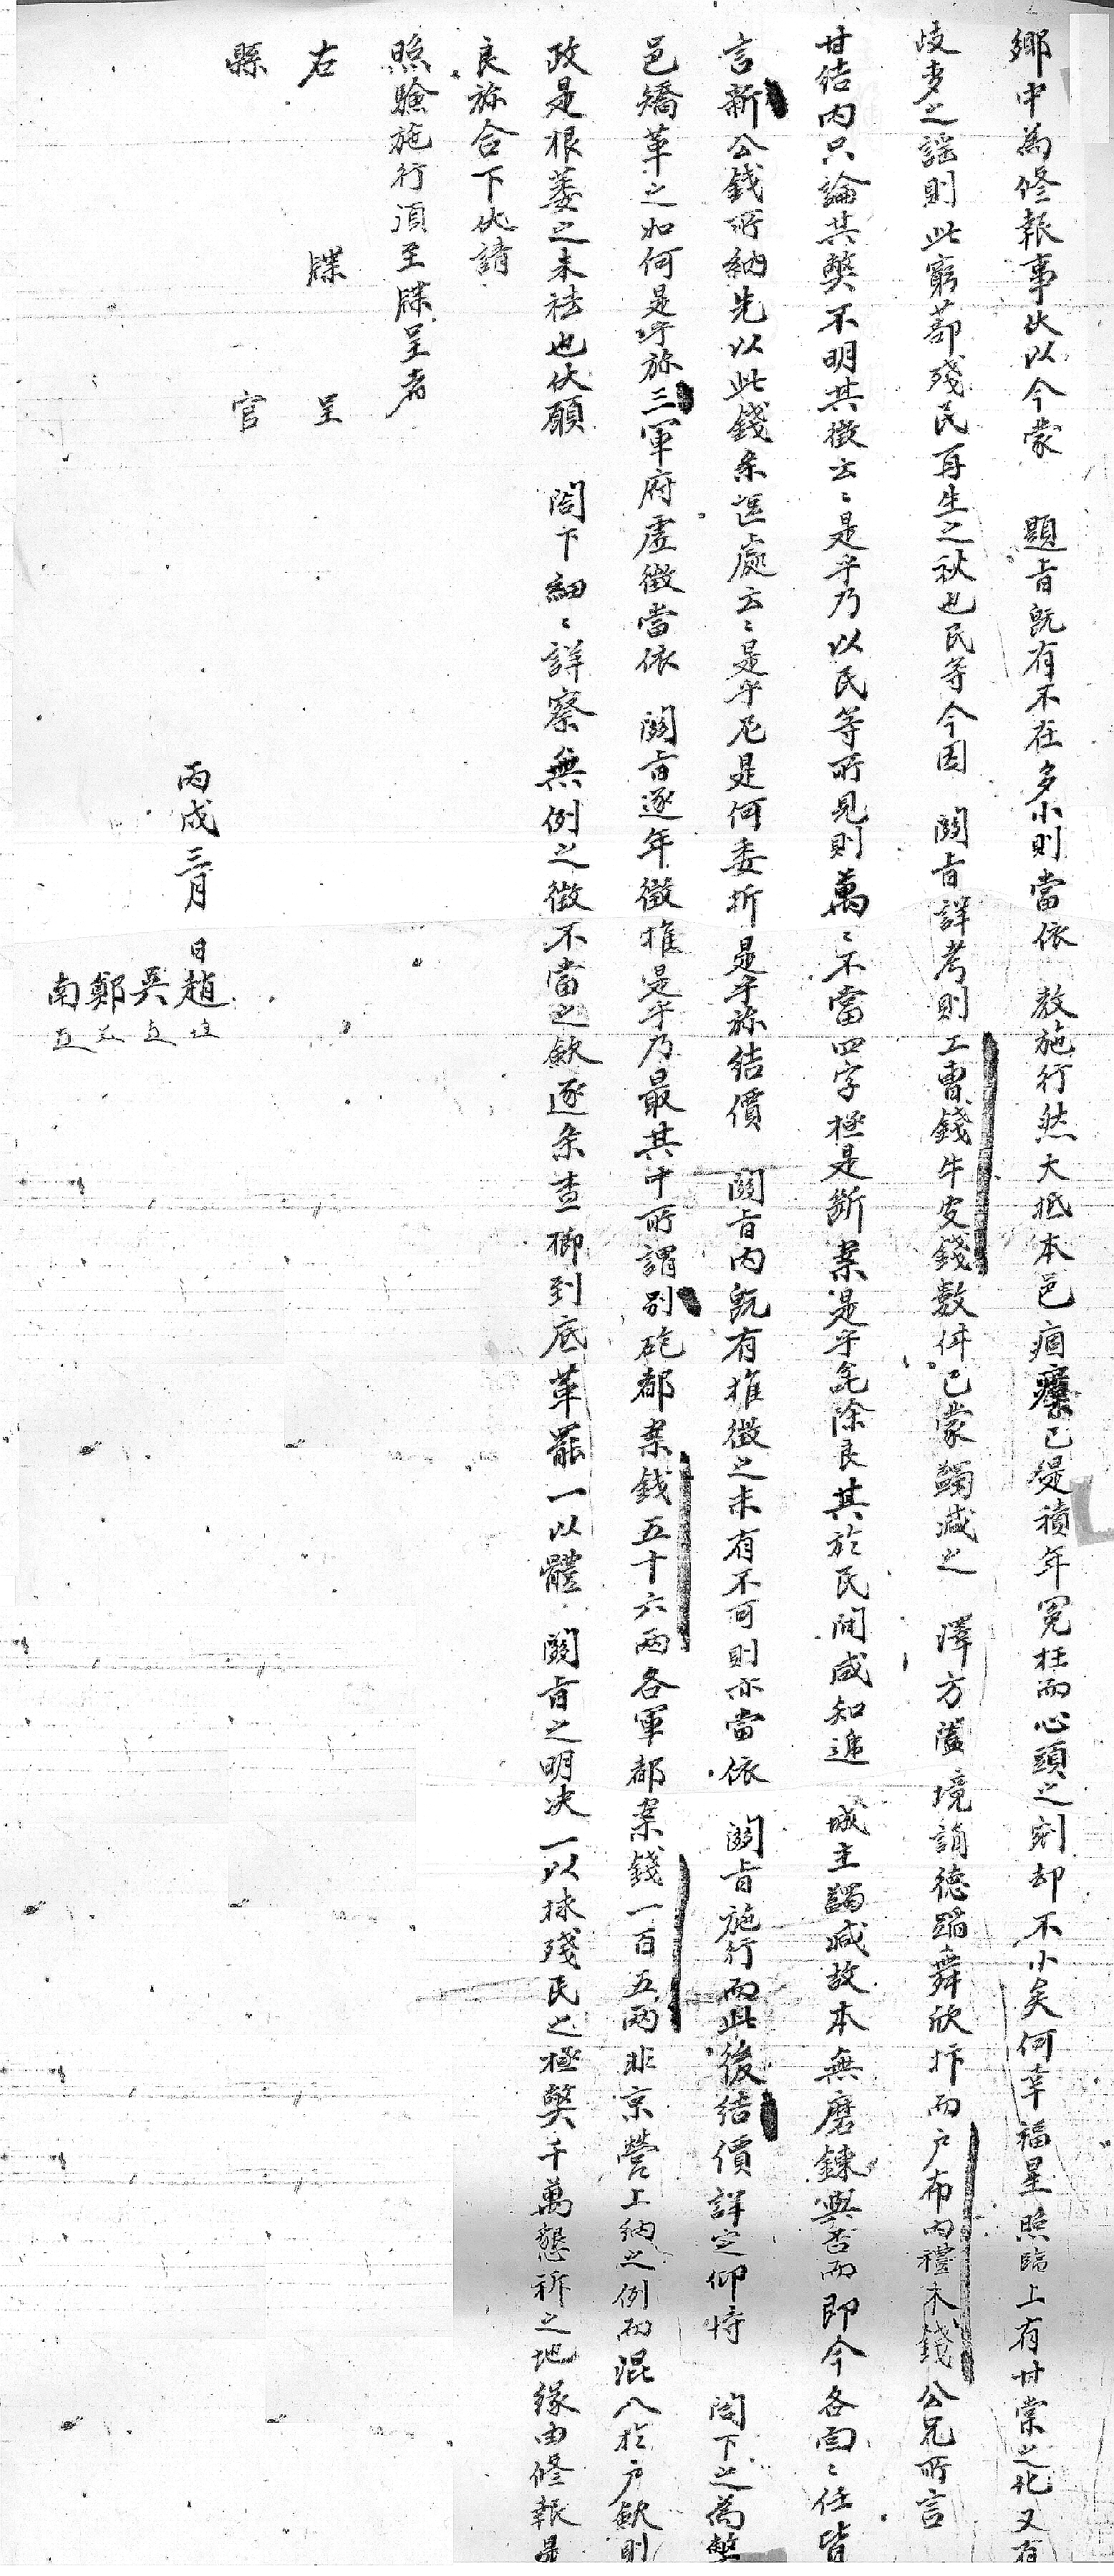 鄕中爲修報事伏以今蒙 題旨旣有不在多小則當依 敎施行然大抵本邑痼瘼已是積年冤枉而心頭之剜却不小矣何幸福星照臨上有甘棠之化又有
歧麥之謠則此窮蔀殘民再生之秋也民等今因 關旨詳考則工曹錢牛皮錢數件已蒙蠲减之 澤方闔境誦德蹈舞欣抃而戶布內禮木錢公兄所言
甘結內只論其弊不明其徵云〻是乎乃以民等所見則萬〻不當四字極是斷案是乎㫆除良其於民間咸知遞 城主蠲减故本無磨鍊與否而卽今各面〻任皆
言新公錢所納先以此錢条區處云〻是乎尼是何委折是乎旀結價 關旨內旣有推徵之未有不可則亦當依 關旨施行而此後結價詳定仰恃 閤下之爲弊
邑矯革之如何是乎旀三軍府虛徵當依 關旨逐年徵推是乎乃最其中所謂別砲都案錢五十六兩各軍都案錢一百五兩非京營上納之例而混入於戶歛則
政是根萎之未祛也伏願 閤下細〻詳察無例之徵不當之歛逐条査櫛到底革罷一以體 關旨之明决一以抹殘民之極弊千萬懇祈之地緣由修報是
良旀合下伏請
照驗施行湏至牒呈者
右 牒 呈
縣 官
丙戌三月 日趙
吳
鄭
南